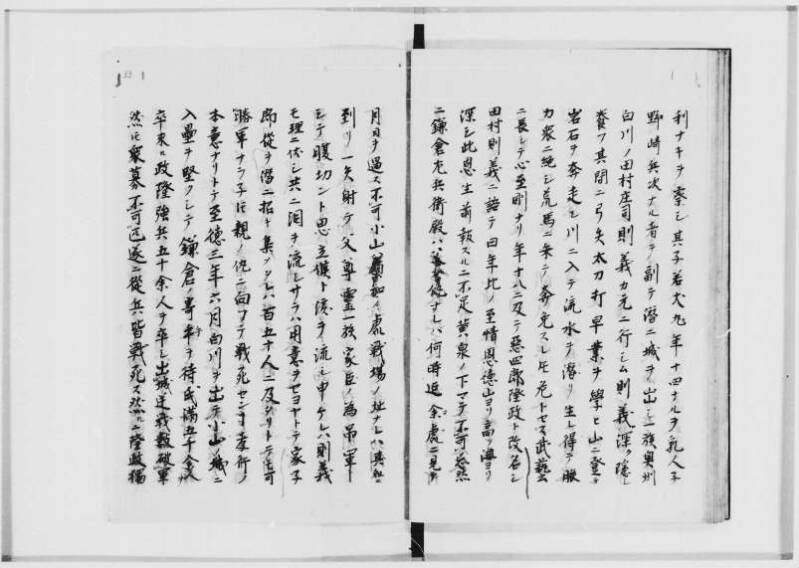 利ナキヲ察シ其子若犬丸年十四ナルヲ乳人子
野崎兵次ナル者ヲ副テ潜ニ城ヲ出シ一族奥州
白川ノ田村庄司則義カ元ニ行シム則義深ク隠シ
養フ其間ニ弓矢太刀打早業ヲ學ヒ山ニ登テ
岩石ヲ奔走シ川ニ入テ流水ヲ潜リ生レ得テ服
力衆ニ绝シ荒馬ニ乗テ奔走スレ𪜈危トセス武藝
ニ長シテ心至剛ナリ年十八ニ及テ惡四郎隆政ト改名シ
田村則義ニ語テ曰年比ノ至情恩徳山ヨリ高ク海ヨリ
深シ此恩生前報スルニ不足黄泉ノ下マテ不可忘然
ニ鎌倉左兵衛殿ハ ナレハ何時迠余處ニ見テ
月日ヲ過ス不可小山 ノ虚戦場ノ地ナレハ其処
到リ一矢射テ父尊霊一族家臣ノ為吊軍
シテ腹切ント思立候ト涙ヲ流シ申ケレハ則義
モ理ニ伏シ共ニ泪ヲ流シサラハ用意ヲセヨヤトテ家子
郎従ヲ潜ニ招キ集ツレハ百五十人ニ及ヘリトテモ可
勝軍ナラ子𪜈親ノ仇ニ向フテ戦死センヿ孝行ノ
本意ナリトテ至徳三年六月白川ヲ出テ小山ノ城ニ
入壘ヲ堅クシテ鎌倉ノ寄手ヲ待氏満五十余
卒来ル政隆強兵五十余人ヲ卒シ出城逆戦数破軍
然𪜈衆寡不可匹遂ニ從兵皆戦死ス然ルニ隆政獨